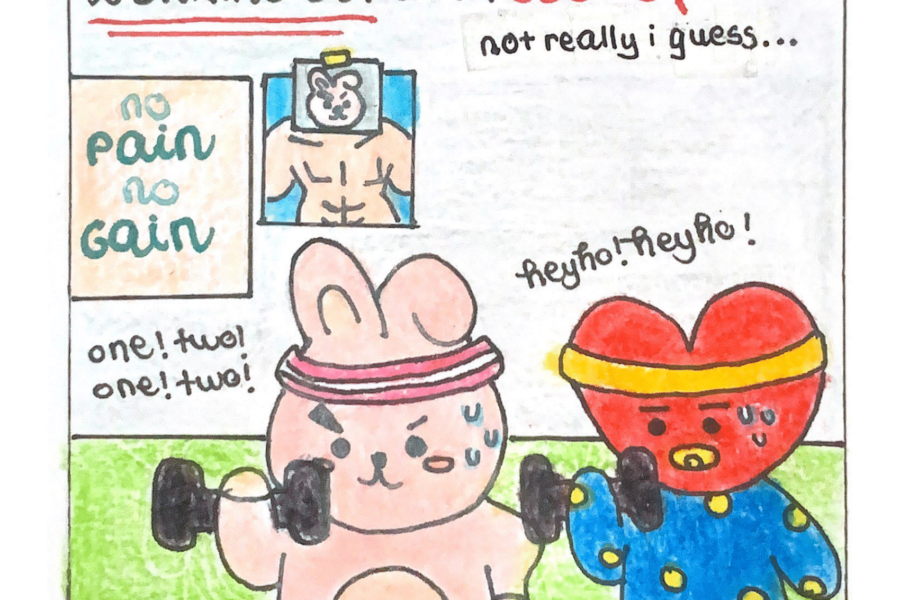 not really i guess...
no
pain
no
Gain
heyho! heyho!
one! two!
one! two!